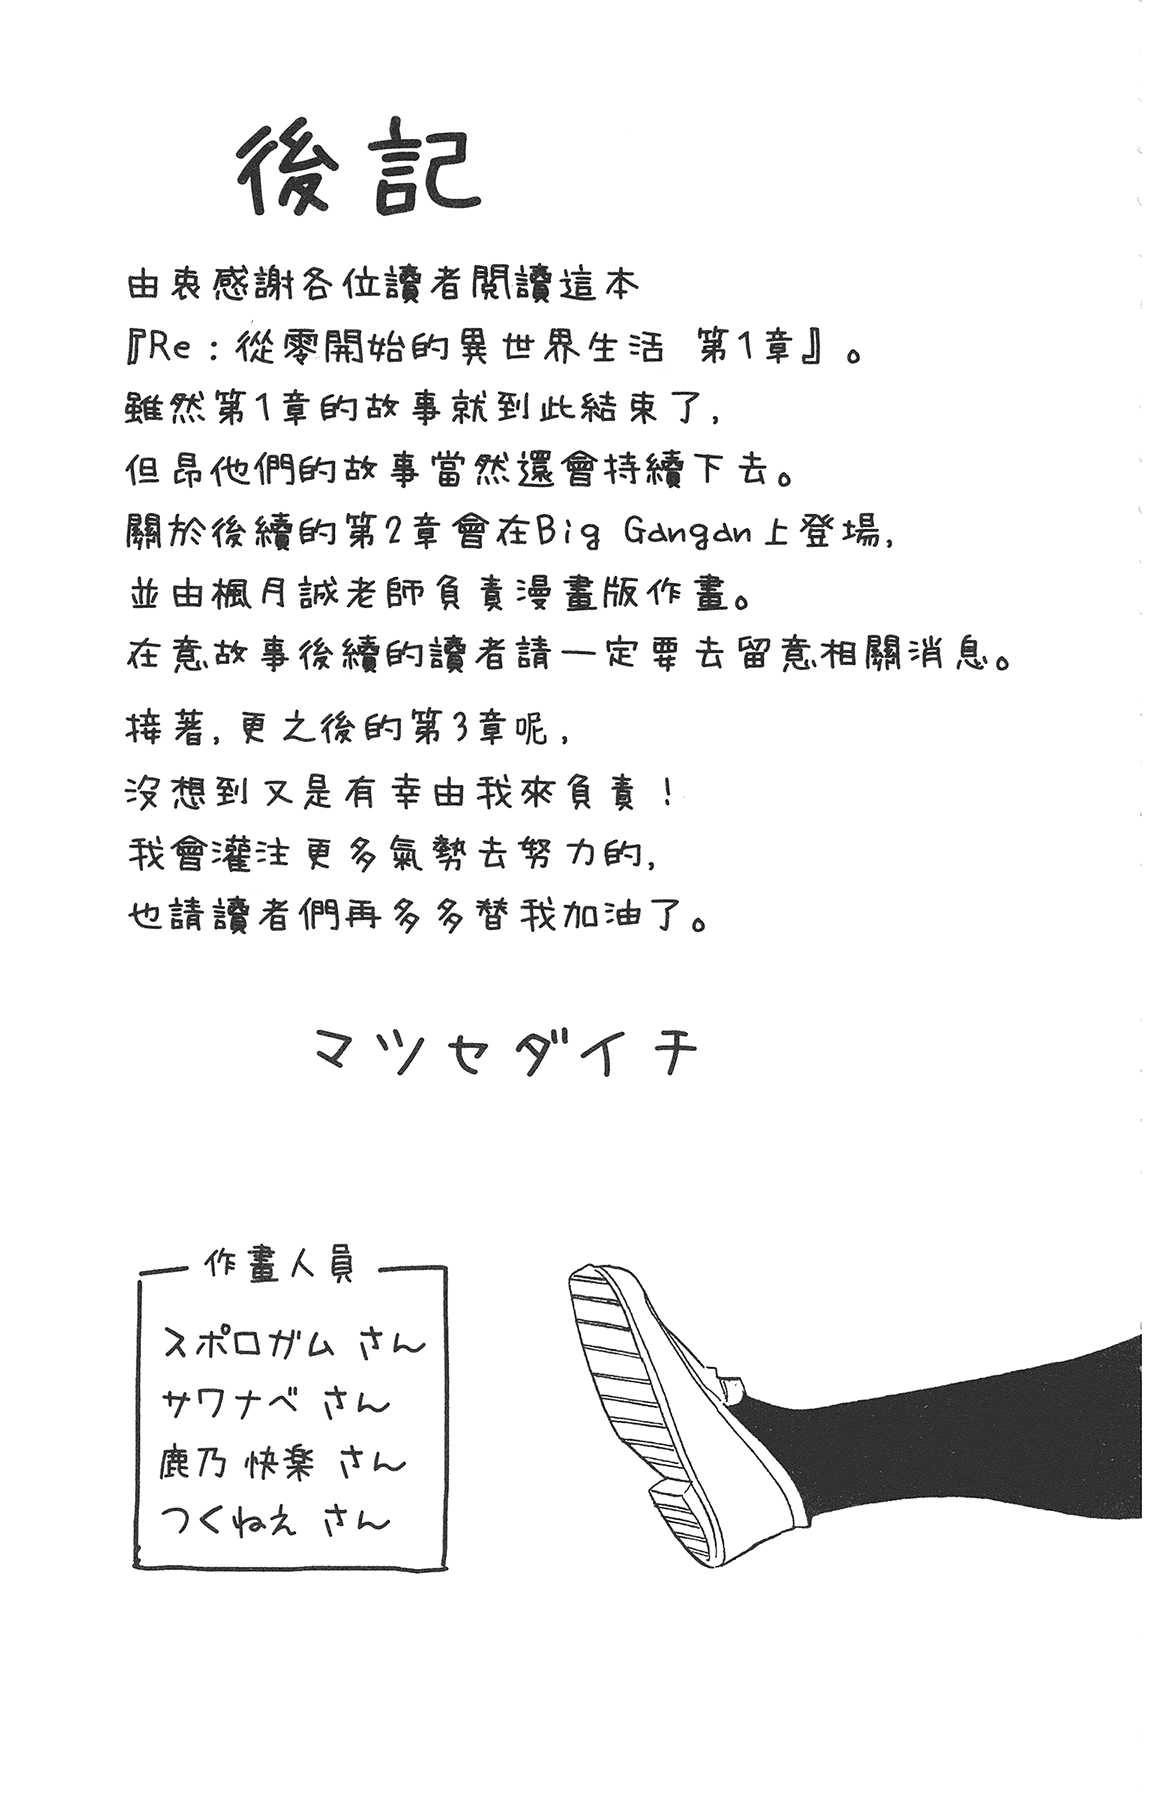 後記
由衷感謝各位讀者閱讀這本
『Re：從零開始的異世界生活 第1章』。
雖然第1章的故事就到此結束了，
但昂他們的故事當然還會持續下去。
關於後續的第2章會在Big Gangan上登場，
並由楓月誠老師負責漫畫版作畫。
在意故事後續的讀者請一定要去留意相關消息。
接著，更之後的第3章呢，
沒想到又是有幸由我來負責！
我會灌注更多氣勢去努力的，
也請讀者們再多多替我加油了。
マツセダイチ
作畫人員
スポロガム さん
サワナベ さん
鹿乃 快楽 さん
つくねえ さん